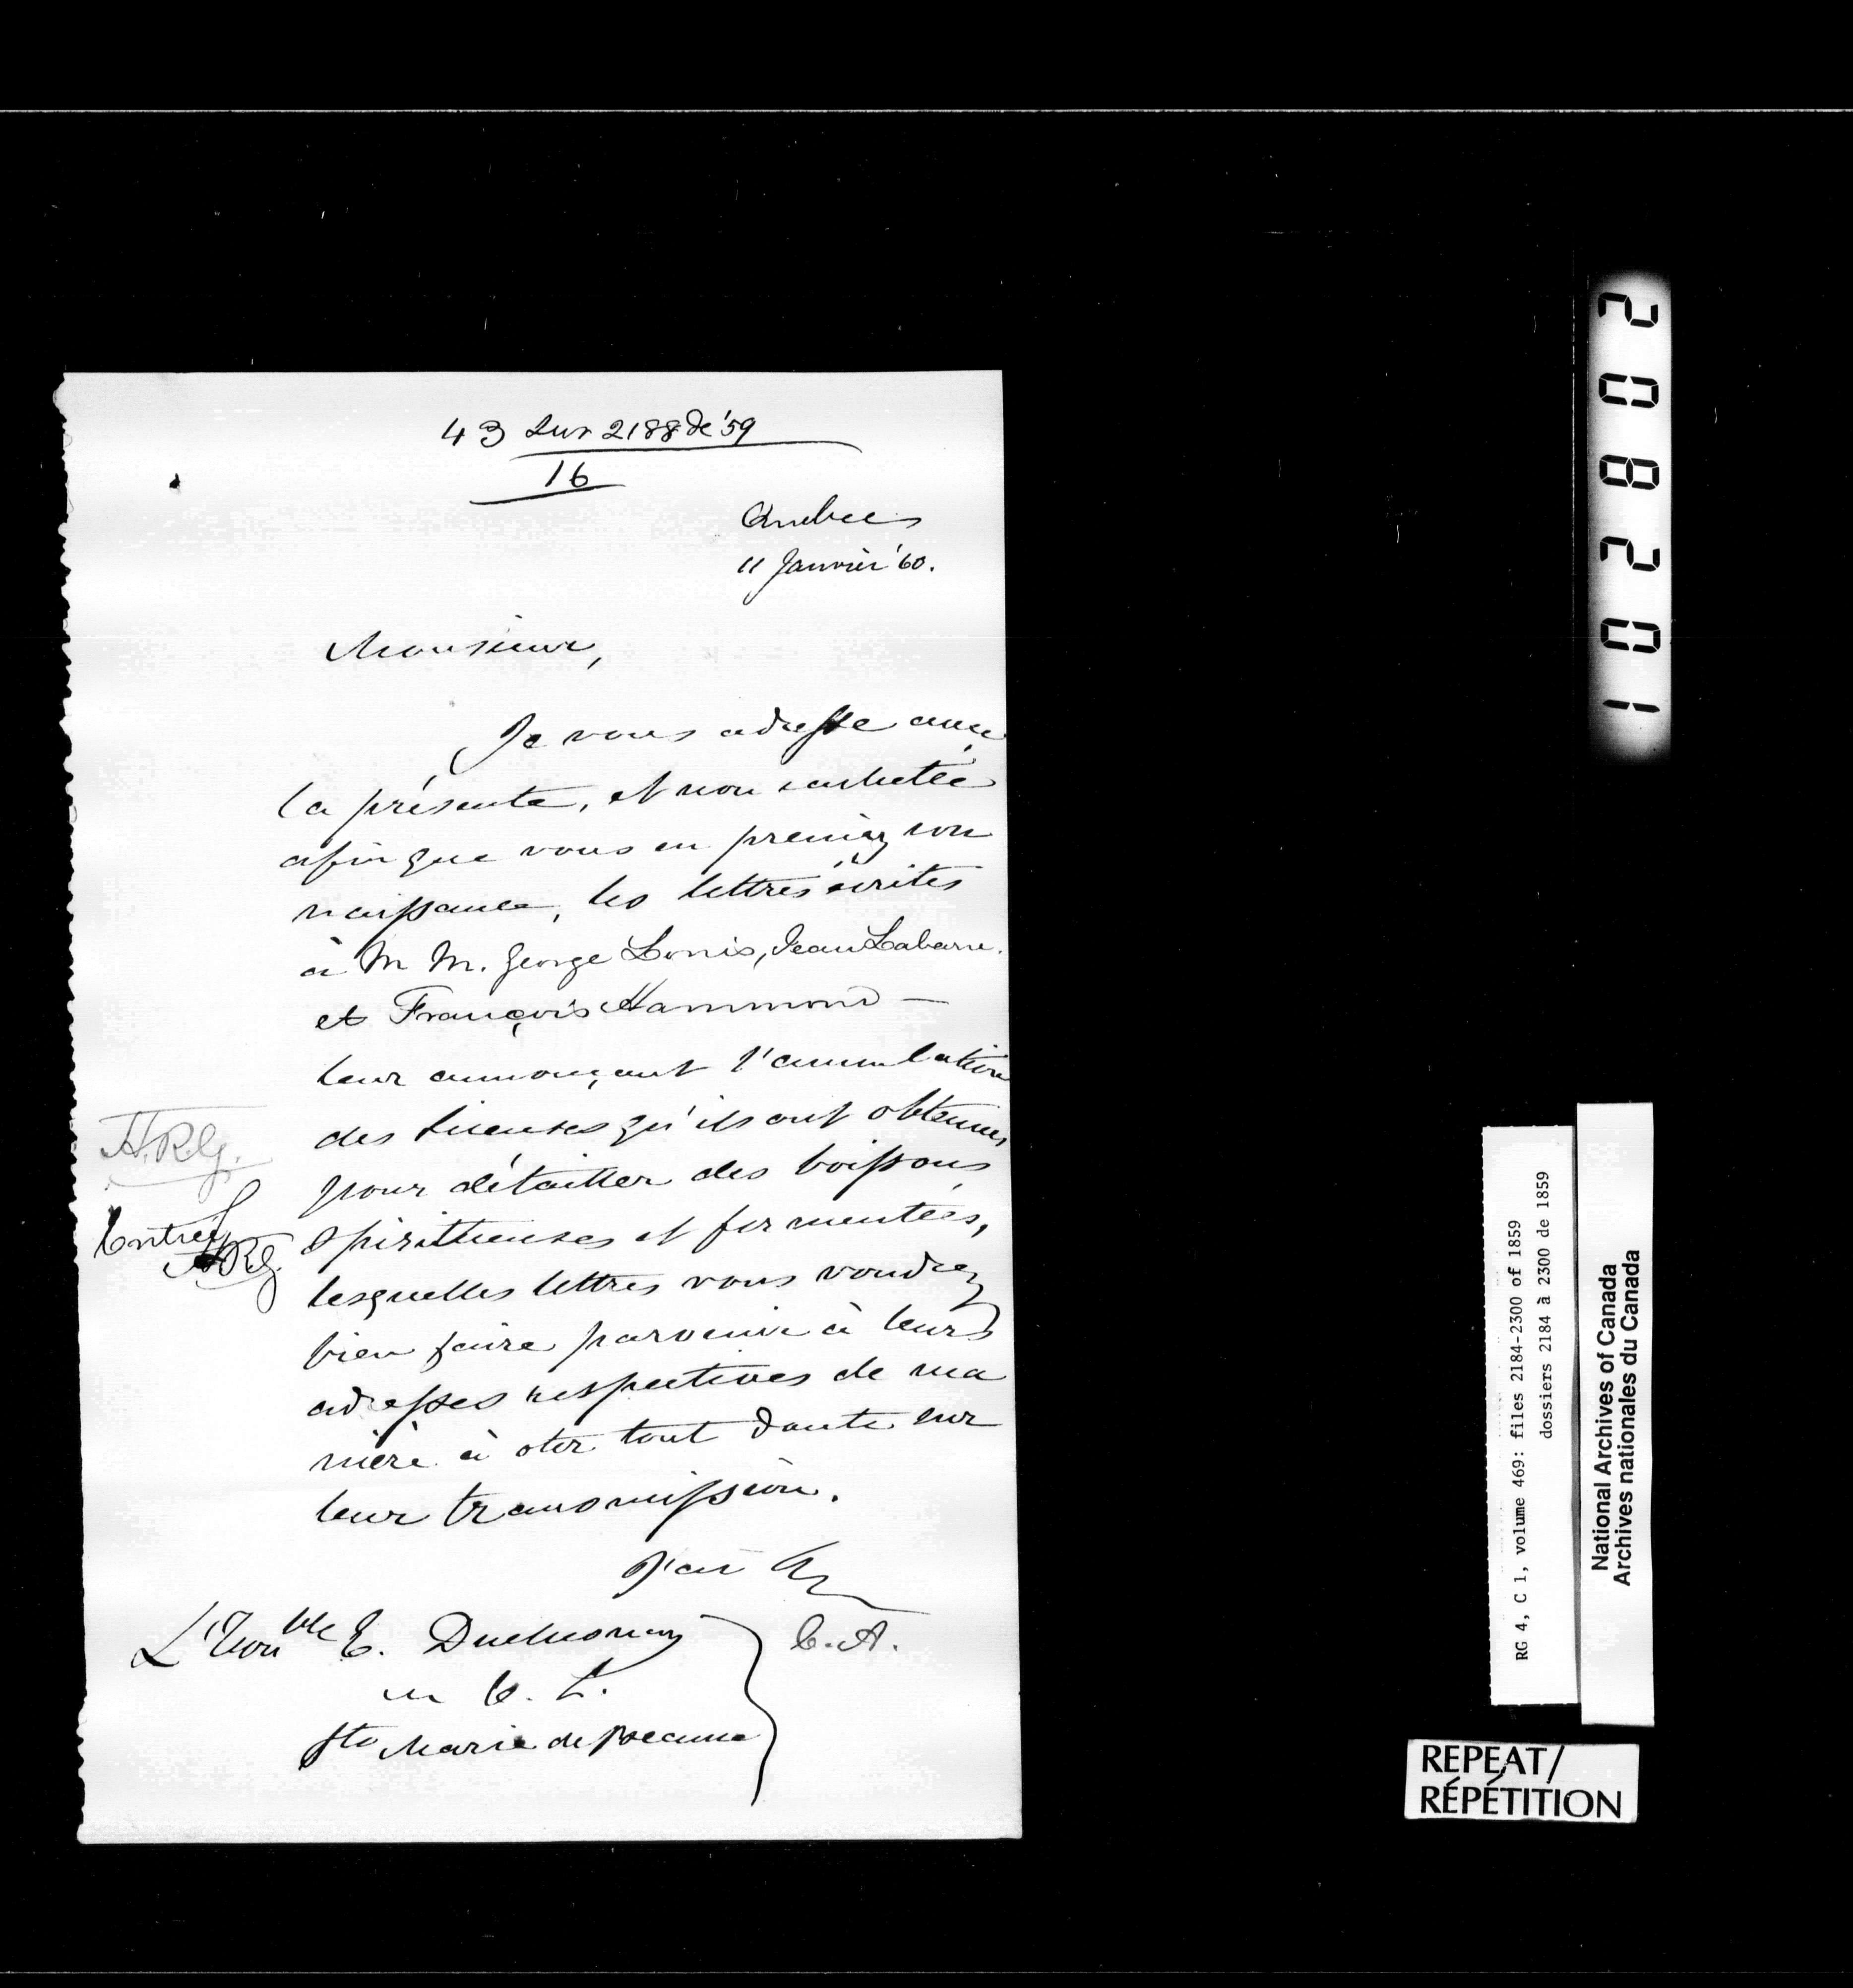 43 Sur 2188 de '59
16
Quebec
11 Janvier '60.
Monsieur,
Je vous adresse avec
la présente, et non cachetée
afin que vous en preniez con
naissance, les lettres écrites
à M M. George Lonis, Jean Labarre
et François Hammond —
leur annonçant l'annulation
des licenses qu'ils ont obtenues
pour détailler des boissons
Spiritueuses et fermentées,
lesquelles lettres vous voudrez
bien faire parvenir à leurs
adresses respectives de ma
nière à oter tout doute sur
leur transmission.
J'ai
C. A.
L'Honble E. Duchesnay
M C. L.
Ste Marie de Beauce
H.R.G.
Entré
H.R.G.
102802
RG 4, C 1, volume 469: files 2184-2300 of 1859
dossiers 2184 à 2300 de 1859
National Archives of Canada
Archives nationales du Canada
REPEAT/
RÉPÉTITION